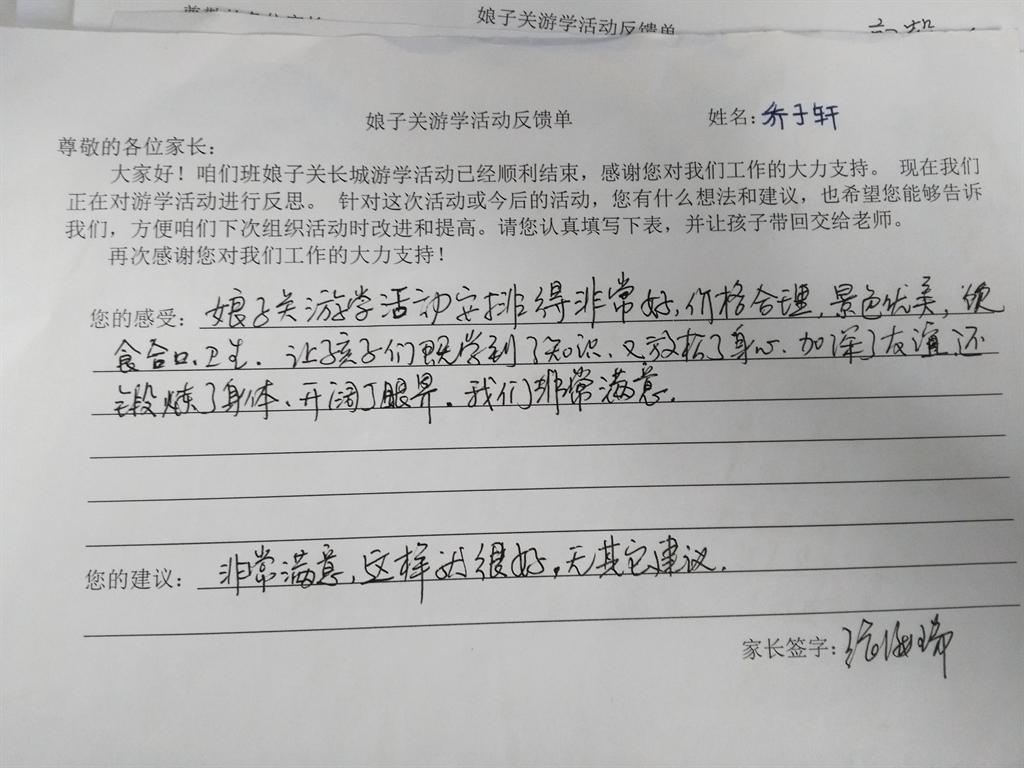 娘子关游学活动反馈单
娘子关游学活动反馈单 姓名:乔子轩
尊敬的各位家长:
大家好!咱们班娘子关长城游学活动已经顺利结束,感谢您对我们工作的大力支持。 现在我们
正在对游学活动进行反思。 针对这次活动或今后的活动,您有什么想法和建议,也希望您能够告诉
我们,方便咱们下次组织活动时改进和提高。请您认真填写下表,并让孩子带回交给老师。
再次感谢您对我们工作的大力支持!
您的感受: 娘子关游学活动安排得非常好,价格合理,景色优美,饮
食合口、卫生. 让孩子们既学到了知识、又放松了身心、加深了友谊还
锻炼了身体、开阔了眼界。我们非常满意.
您的建议: 非常满意,这样就很好,无其它建议.
家长签字: